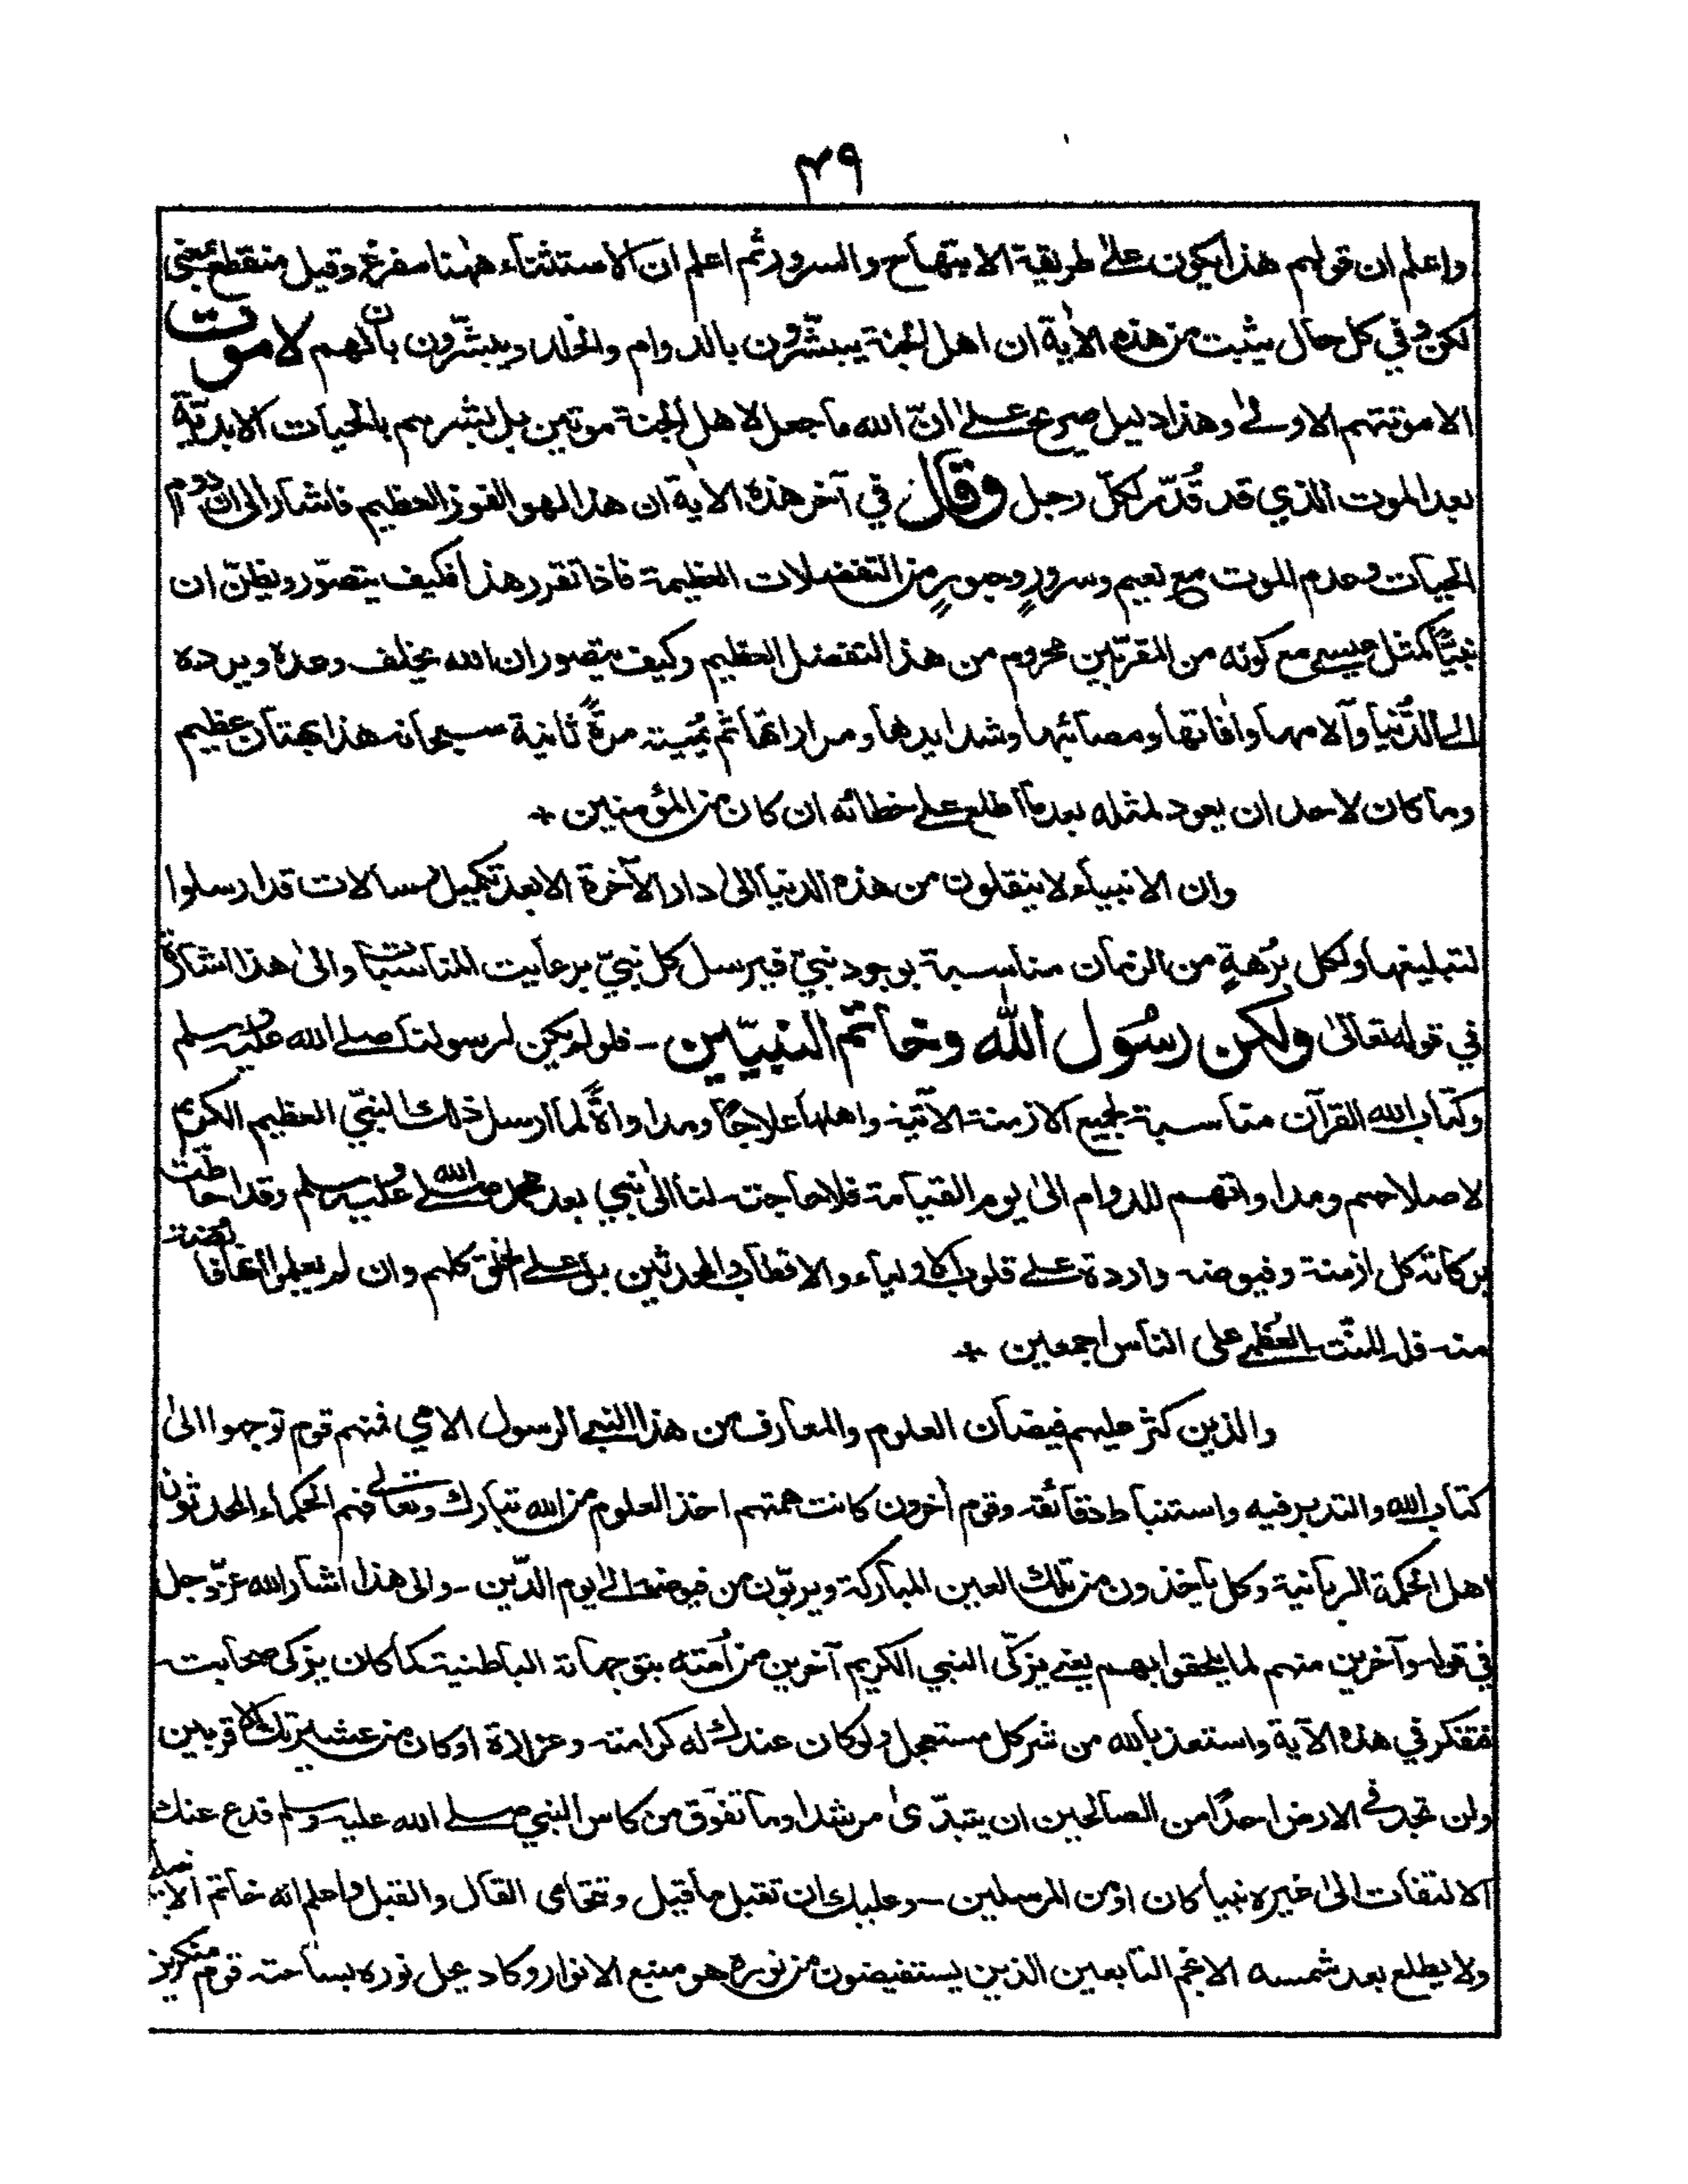 ٤٩
واعلم ان قولهم هذا يكون على طريقة الابتهاج والسرور ثم اعلم ان الاستثناء ههنا مفرغ وقيل منقطع بمعنى
لكن وفي كل حال يثبت من هذه الاٰية ان اهل الجنة يبشّرون بالدوام والخلد ويبشّرون بانّ لهم لا موت
الا موتتهم الاولٰى وهذا دليل صريح علىٰ انّ الله ما جعل لاهل الجنة موتين بل بشّرهم بالحيات الابديّة
بعد الموت الذي قد قُدّر لكلّ رجل وقال في آخر هذه الاٰية ان هذا لهو الفوز العظيم فاشار الى ان دوام
الحيات وعدم الموت مع نعيم وسرورٍ وحبورٍ من التفضلات العظيمة فاذا تقرر هذا فكيف يتصوّر ويظنّ ان
نبيًّا كمثل عيسى مع كونه من المقرّبين محروم من هذا التفضل العظيم وكيف يتصور ان الله يخلف وعده ويرده
الى الدُّنيا وآلامها وآفاتها ومصائبها وشدايدها ومراراتها ثم يُميته مرةً ثانية سبحانه هذا بهتان عظيم
وما كان لاحد ان يعود لمثله بعد ما اطلع على خطائه ان كان من المؤمنين +
وان الانبياء لا ينقلون من هذه الدنيا الىٰ دار الآخرة الا بعد تكميل رسالات قد ارسلوا
لتبليغها ولكل بُرْهةٍ من الزمان مناسبة بوجود نبيّ فيرسل كل نبيّ برعايت المناسبات والىٰ هذا اشارة
في قوله تعالىٰ ولكن رسُول الله وخاتم النبيّين – فلو لم يكن لرسولنا صلى الله عليه وسلم
وكتاب الله القرآن مناسبة لجميع الازمنة الآتية واهلها علاجًا ومداواةً لما ارسل ذلك النبيّ العظيم الكريم
لاصلاحهم ومداواتهم للدوام الىٰ يوم القيامة فلا حاجة لنا الىٰ نبي بعد محمد صلى الله عليه وسلم وقد احاطت
بركاته كل ازمنة وفيوضه واردة على قلوب الاولياء والاقطاب والمحدثين بل على الخلق كلهم وان لم يعلموا انها فائضة
منه فله المنّت العُظمى على الناس اجمعين +
والذين كثر عليهم فيضان العلوم والمعارف من هذا النبي الرسول الامي فمنهم قوم توجهوا الىٰ
كتاب الله والتدبر فيه واستنباط دقائقه وقوم اٰخرون كانت همتهم اخذ العلوم من الله تبارك وتعالى فهم الحكماء المحدثون
اهل الحكمة الربانية وكل ياخذون من تلك العين المباركة ويربّون من فيوضها الىٰ يوم الدّين – والى هذا اشار الله عزّ وجل
في قوله وآخرين منهم لما يلحقوا بهم يعنى يزكّى النبي الكريم آخرين من اُمته بتوجهاته الباطنية كما كان يزكى صحابته
ففكر في هذه الآية واستعذ بالله من شر كل مستعجل ولو كان عندك له كرامة وعزازة او كان من عشيرتك الاقربين
ولن تجد فى الارض احدًا من الصالحين ان يتبدّىٰ مرشدا وما تفوّق من كاس النبي صلى الله عليه وسلم فدع عنك
الالتفات الىٰ غيره نبيا كان او من المرسلين – وعليك ان تقبل ما قيل وتتحامى القال والقيل واعلم انه خاتم الانبياء
ولا يطلع بعد شمسه الا نجم التابعين الذين يستفيضون من نوره هو منبع الانوار وكاد يحل نوره بساحة قوم منكرين